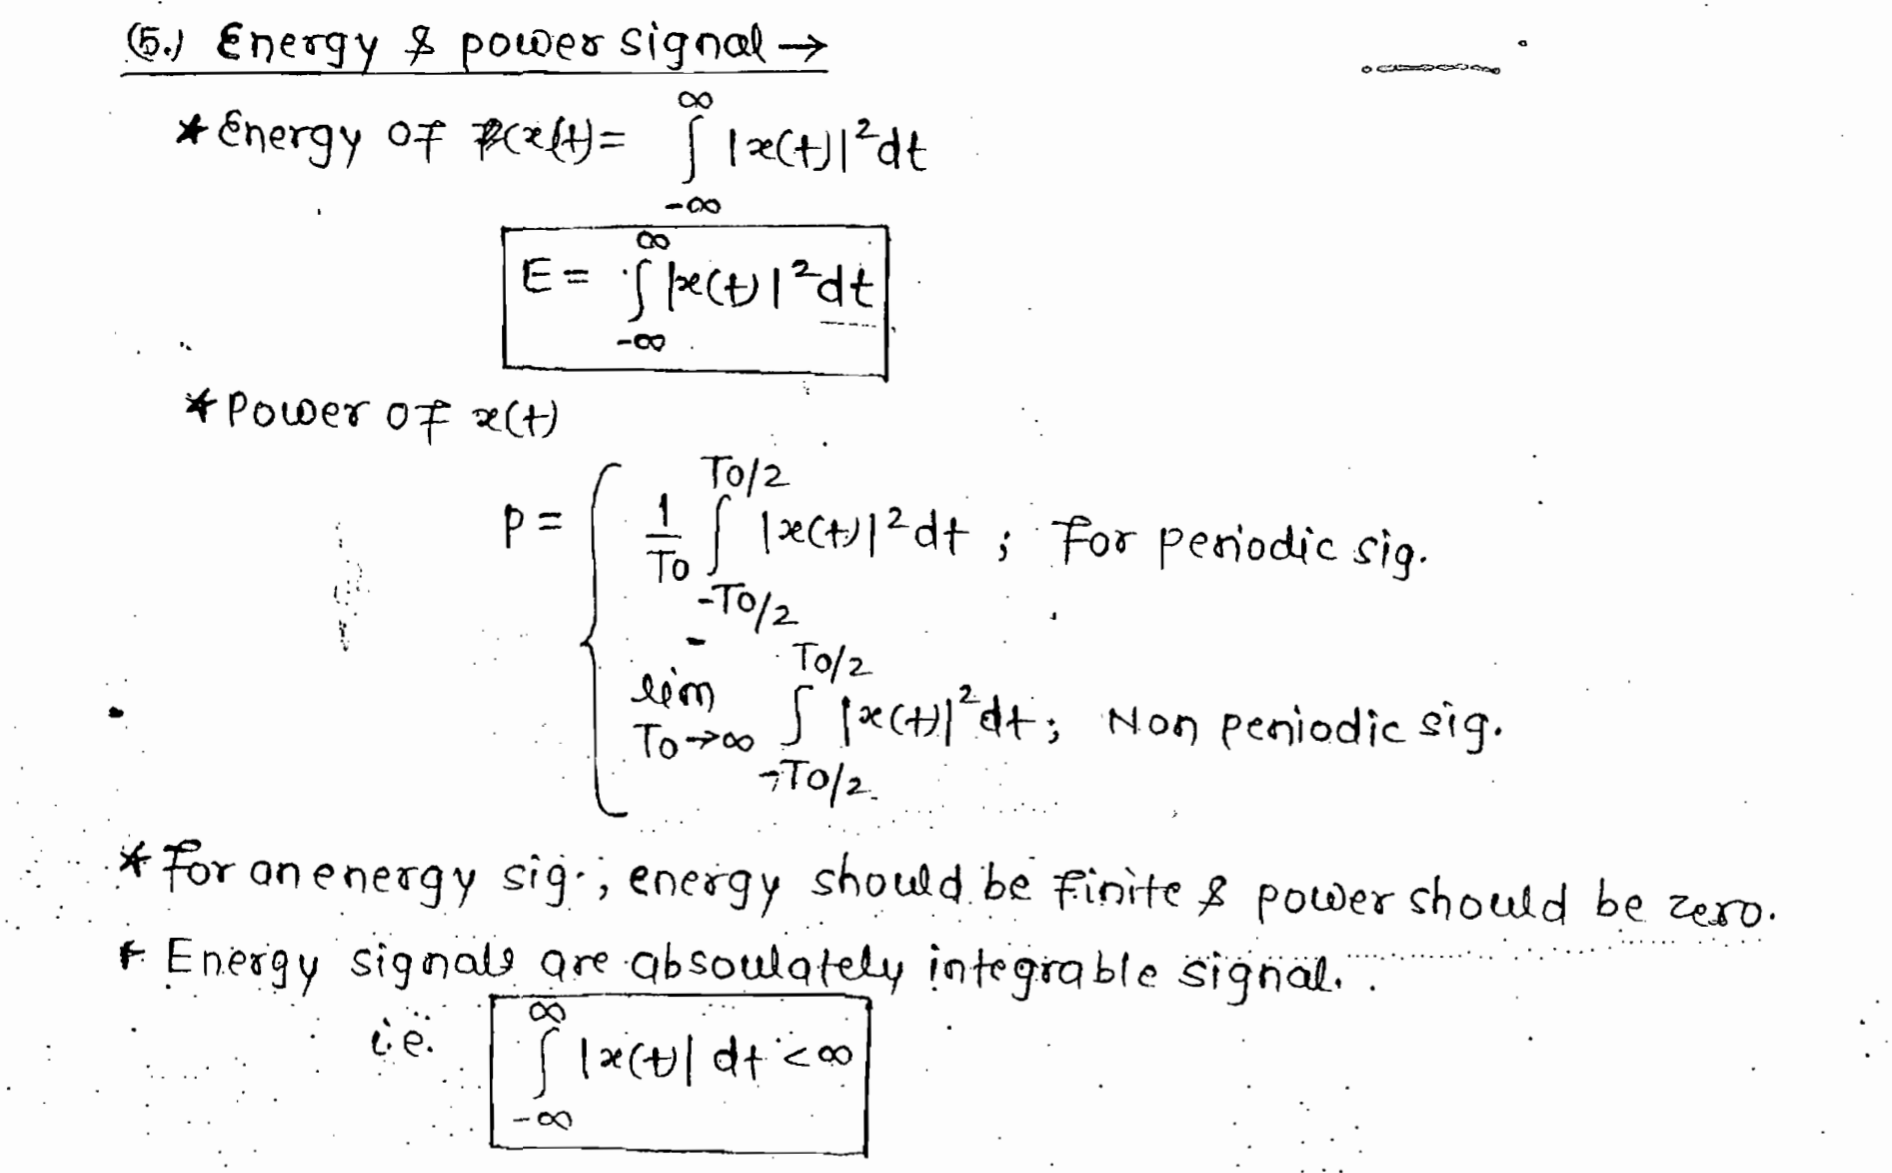 (5.) Energy & power signal →
* Energy of x(t) = ∫_{-∞}^{∞} |x(t)|² dt
E = ∫_{-∞}^{∞} |x(t)|² dt
* Power of x(t)
P = { 1/To ∫_{-To/2}^{To/2} |x(t)|² dt ; For periodic sig.
lim_{To→∞} ∫_{-To/2}^{To/2} |x(t)|² dt ; Non periodic sig.
* For an energy sig., energy should be finite & power should be zero.
* Energy signals are absoulately integrable signal.
i.e. ∫_{-∞}^{∞} |x(t)| dt < ∞